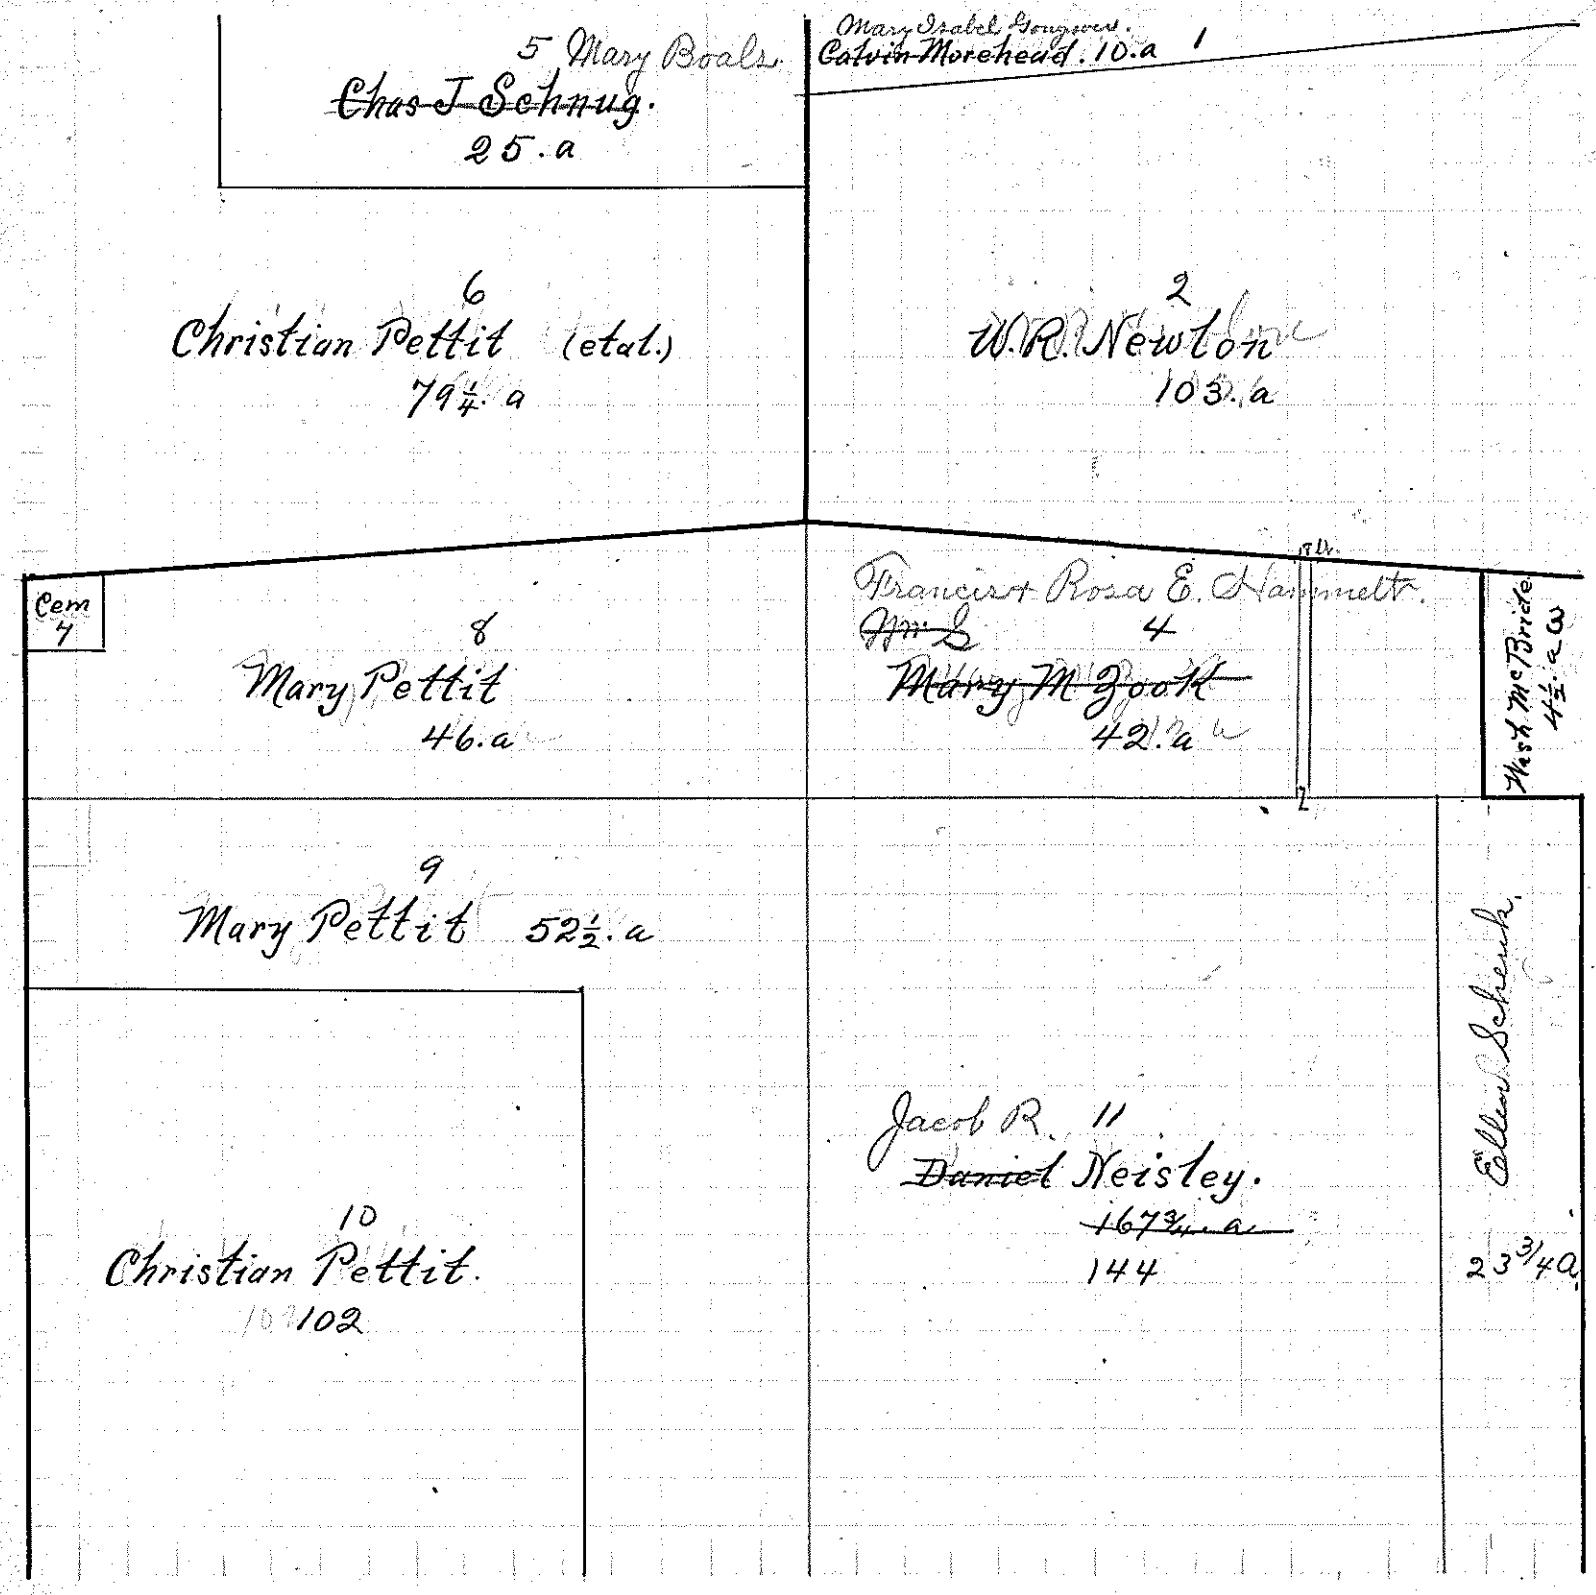 5 Mary Boals
Chas J Schnug.
25.a
Mary Isabel
Calvin Morehead. 10.a 1
6
Christian Pettit (etal.)
79 1/4. a
2
W.R. Newton
103. a
Cem
7
8
Mary Pettit
46.a
Francis & Rosa E. Hammelt.
Wm S 4
Mary M Zook
42.a
Wash McBride
4 1/2. a 3
9
Mary Pettit 52 1/2. a
Ellen Schenk.
23 3/4 a.
Jacob R. 11
Daniel Neisley.
167 3/4. a
144
10
Christian Pettit.
102